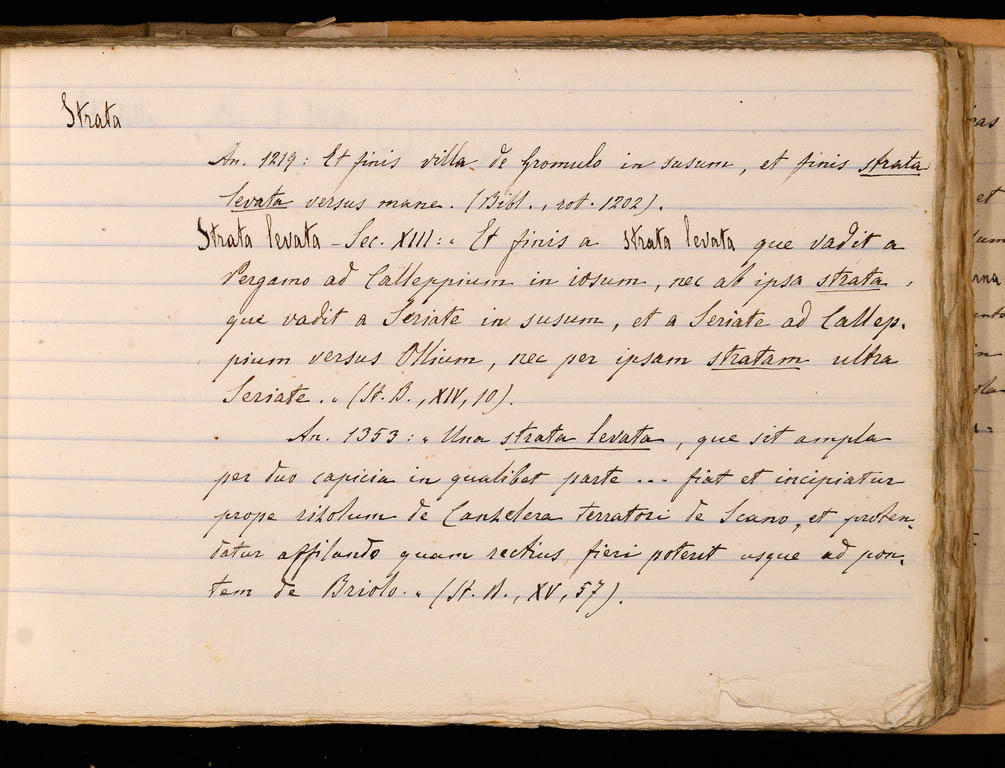 Strata
An. 1219: Et finis villa de Gromulo in susum, et finis strata
levata versus mane. (Bibl., rot. 1202).
Strata levata - Sec. XIII: „ Et finis a strata levata que vadit a
Pergamo ad Calleppium in iosum, nec ab ipsa strata,
que vadit a Seriate in susum, et a Seriate ad Callep-
pium versus Ollium, nec per ipsam stratam ultra
Seriate. „ (St. B., XIV, 10).
An. 1353: „ Una strata levata, que sit ampla
per duo capicia in qualibet parte ... fiat et incipiatur
prope rizolum de Canzelera terratori de Scano, et proten-
datur affilando quam rectius fieri poterit usque ad pon-
tem de Briolo. „ (St. B., XV, 57).